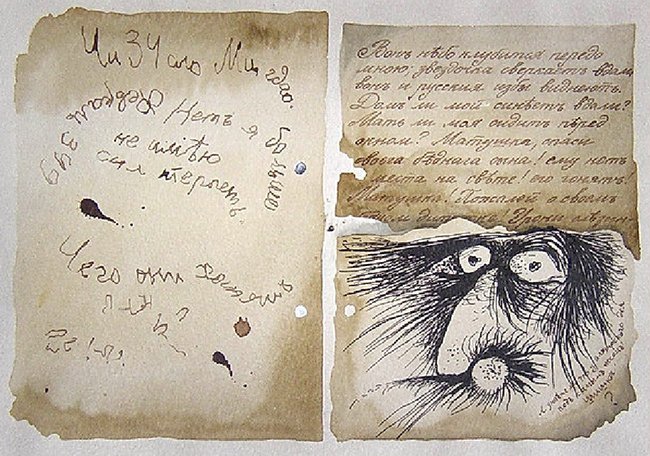 Чи 34 сло Мц гдао.
Февраль 349
Нетъ я больше
не имѣю
сил терпеть
Чего они хотятъ
Вонъ нѣбо клубится передо
мною; звездочка сверкаетъ вдали
вонъ и русския избы виднеютъ.
Домъ ли мой синѣетъ вдали?
Мать ли моя сидитъ пѣред
окном? Матушка, спаси
своего бѣднаго сына! ему нетъ
места на свѣте! его гонятъ.
Матушка! Пожалей о своемъ
шишка
?